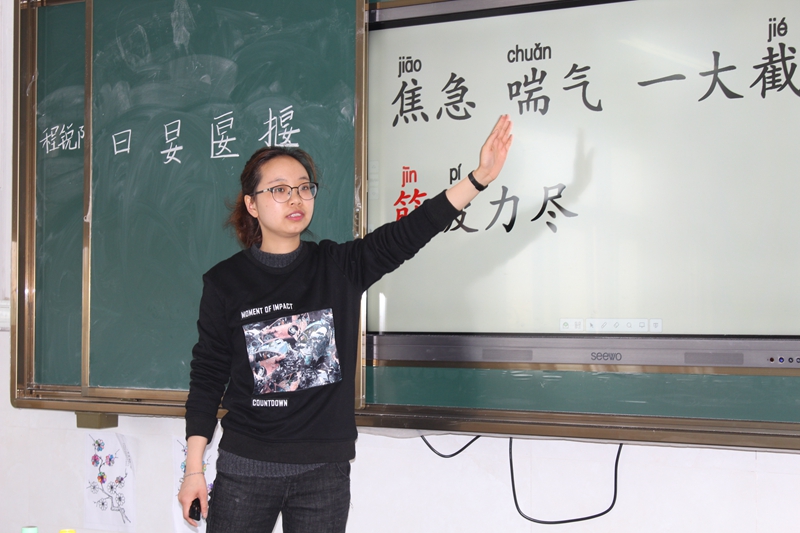 程锐阝
日 妟 匽 揠
jiāo chuǎn jié
焦急 喘气 一大截
jìn pí
力尽
MOMENT OF IMPACT
COUNTDOWN
seewo